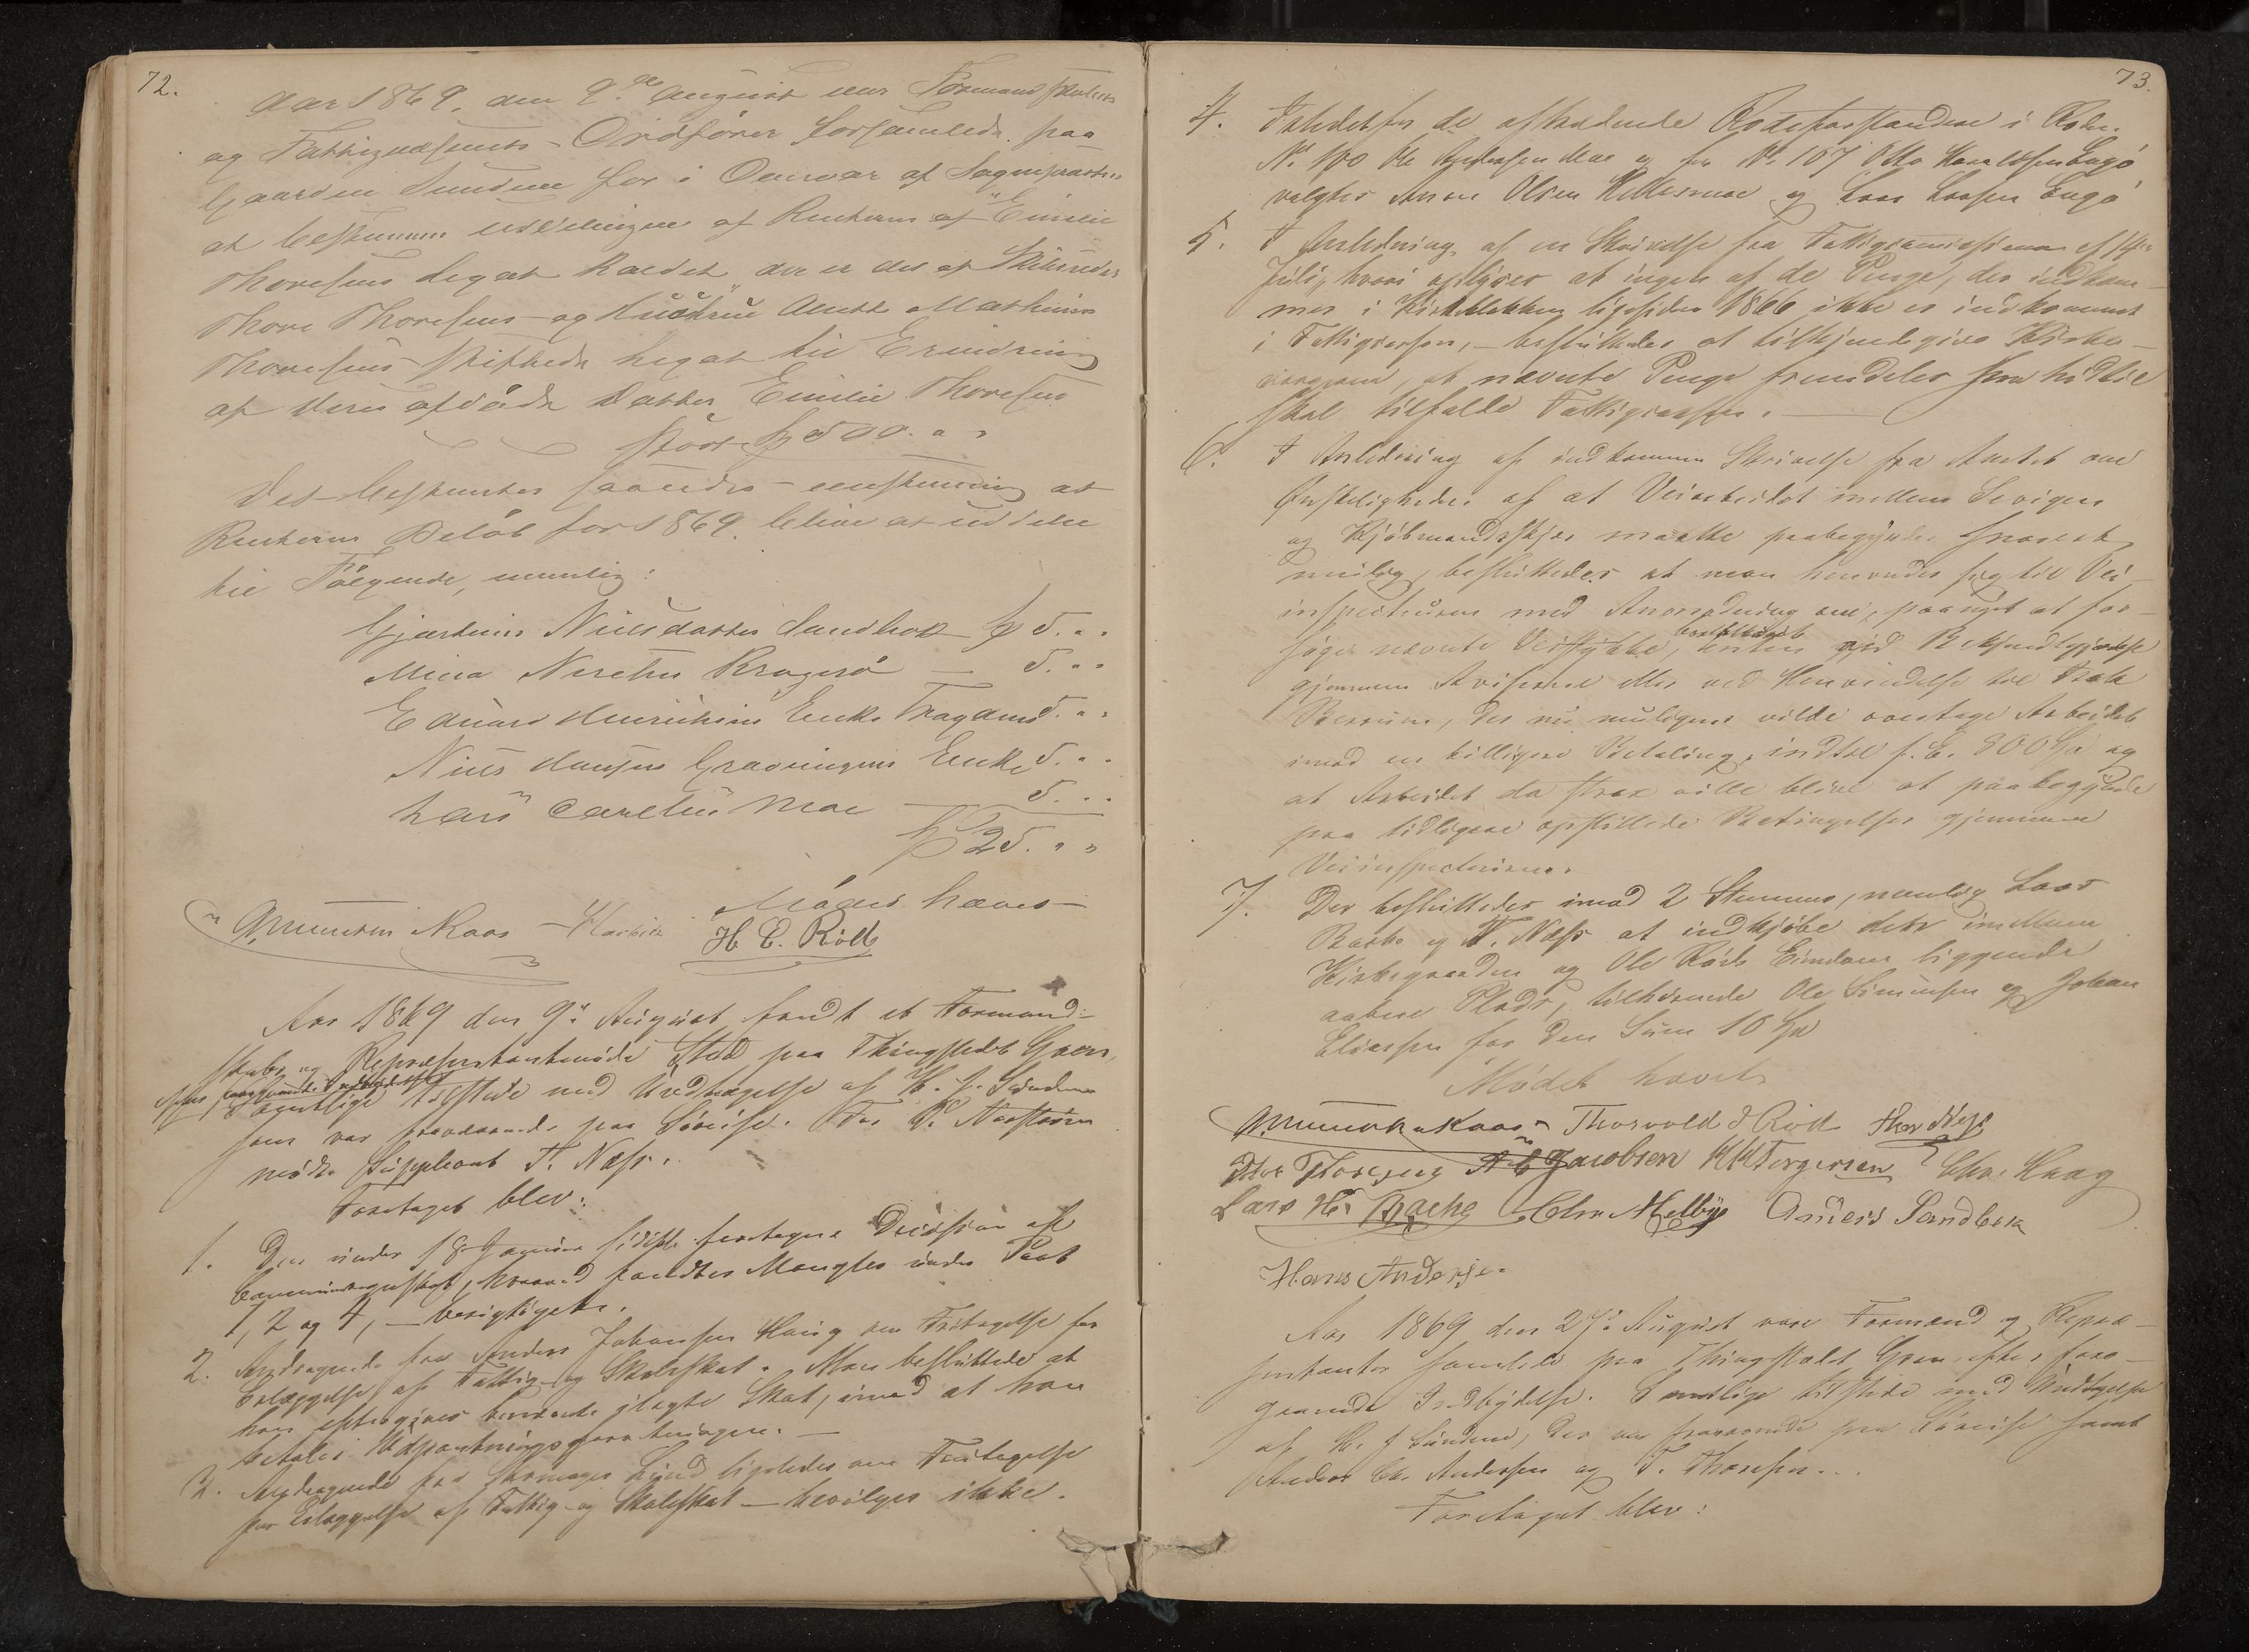 72.
Aar 1869, den 9de August var Formandskabets
og Fattigvæsenets Ordförer forsamlede paa
Gaarden Sundene for i Overvær af Sognepræsten
at bestemme uddelingen af Renterne af "Emilie
Thoresens Legat kaldet, der er det af
Thore Thoresens og Hustrue
Thoresens stiftede Legat til Erindring
af deres afdöde Datter Emilie Thoresen
stort 500. " "
Det bestemtes saaledes eenstemmig at
Renterne Belöb for 1869 blive at uddele
til Fölgende, nemlig:
Nielsdatter Sandbek 5. " "
Mina Kragerö — 5. " "
Enke 5. " "
Niels Hansens Enke 5. " "
Lars Moe — 5. " "
25. " "
Mödet hævet
Kaas H. C. Röed
Aar 1869 den 9de August fandt et Formand-
skabs og Repræsentantmöde Sted paa Thingstedet Gren,
efter foregaaende Indbydelse
Samtlige tilstede med Undtagelse af H. J. Sundene
som var fraværende paa Söreise. For
mödte Suppleant T. Næss.
Foretaget blev:
1. Den under 18 Januar sidste foretagne Decision af
hvorved fandtes Mangler under Post
1, 2 og 4, — besigtigede.
2. Andragende fra Anders Johansen Haug om Fritagelse for
Erlæggelse af Fattig- og Skoleskat. Man besluttede at
ham eftergives ilagte Skat, imod at han
betaler Udpantningsforretningen. —
3. Andragende fra Lund ligeledes om Fritagelse
for Erlæggelse af Fattig- og Skoleskat — bevilges ikke.
73.
4. Istedetfor de aftrædende Rodeforstandere i Rode
No. 100 Ole Andersen Moe og for No. 107 Otto Haraldsen Engö
valgtes Olsen og Lars Larsen Engö
5. I Anledning af en Skrivelse fra Fattigcommissionen af
Juli, hvori oplyses at ingen af de Penge, der indkom-
mer i Kirkeblokken ligesiden 1866 ikke er indkommet
i Fattigcassen, — besluttedes at tilkjendegive Kirke-
værgerne, at nævnte Penge fremdeles som hidtil
skal tilfalde Fattigcassen. —
6. I Anledning af indkommen Skrivelse fra Amtet om
Önskeligheden af at Veiarbeidet mellem Sevigen
og Kjöbmandsskjær maatte paabegyndes snarest
muligt, besluttedes at man henvender sig til Vei-
inspecteuren med Anmodning om, paanyt at for-
söge nævnte Veistykke bortakkordt, enten ved Bekjendtgjörelse
gjennem Aviserne eller ved Henvendelse til
der nu muligens vilde overtage Arbeidet
imod en billigere Betaling, indtil f. E. 300 Spd og
at Arbeidet da strax ville blive at paabegynde
paa tidligere opstillede Betingelser gjennem
Veiinspecteuren.
7. Der besluttedes imod 2 Stemmer, nemlig Lars
Bakke og T. Næss at indkjöbe det imellem
Kirkegaarden og Ole Röeds Eiendom liggende
aabne Plads, tilhörende Ole Simensen og Johan
Eliassen for den Sum 10 Spd
Mödet hævet
Kaas Thorvold J Röed Thor Næss
Thor Thoresen A. C. Jacobsen H H Torgersen Chr. Haag
Lars H. Backe Chr. Melbye Anders Sandbek
Hans Andersen
Aar 1869 den 27de August vare Formænd og Repræ-
sentanter samlede paa Thingstedet Gren, efter fore-
gaaende Indbydelse. Samtlige tilstede med Undtagelse
af H. J Sundene, der var fraværende paa Söreise samt
Anders Chr. Andersen og T. Thoresen.
Foretaget blev: